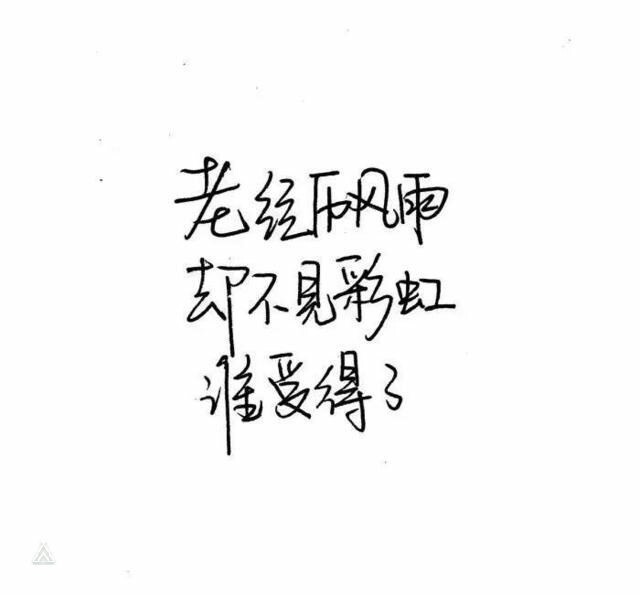 老经历风雨
却不见彩虹
谁受得了